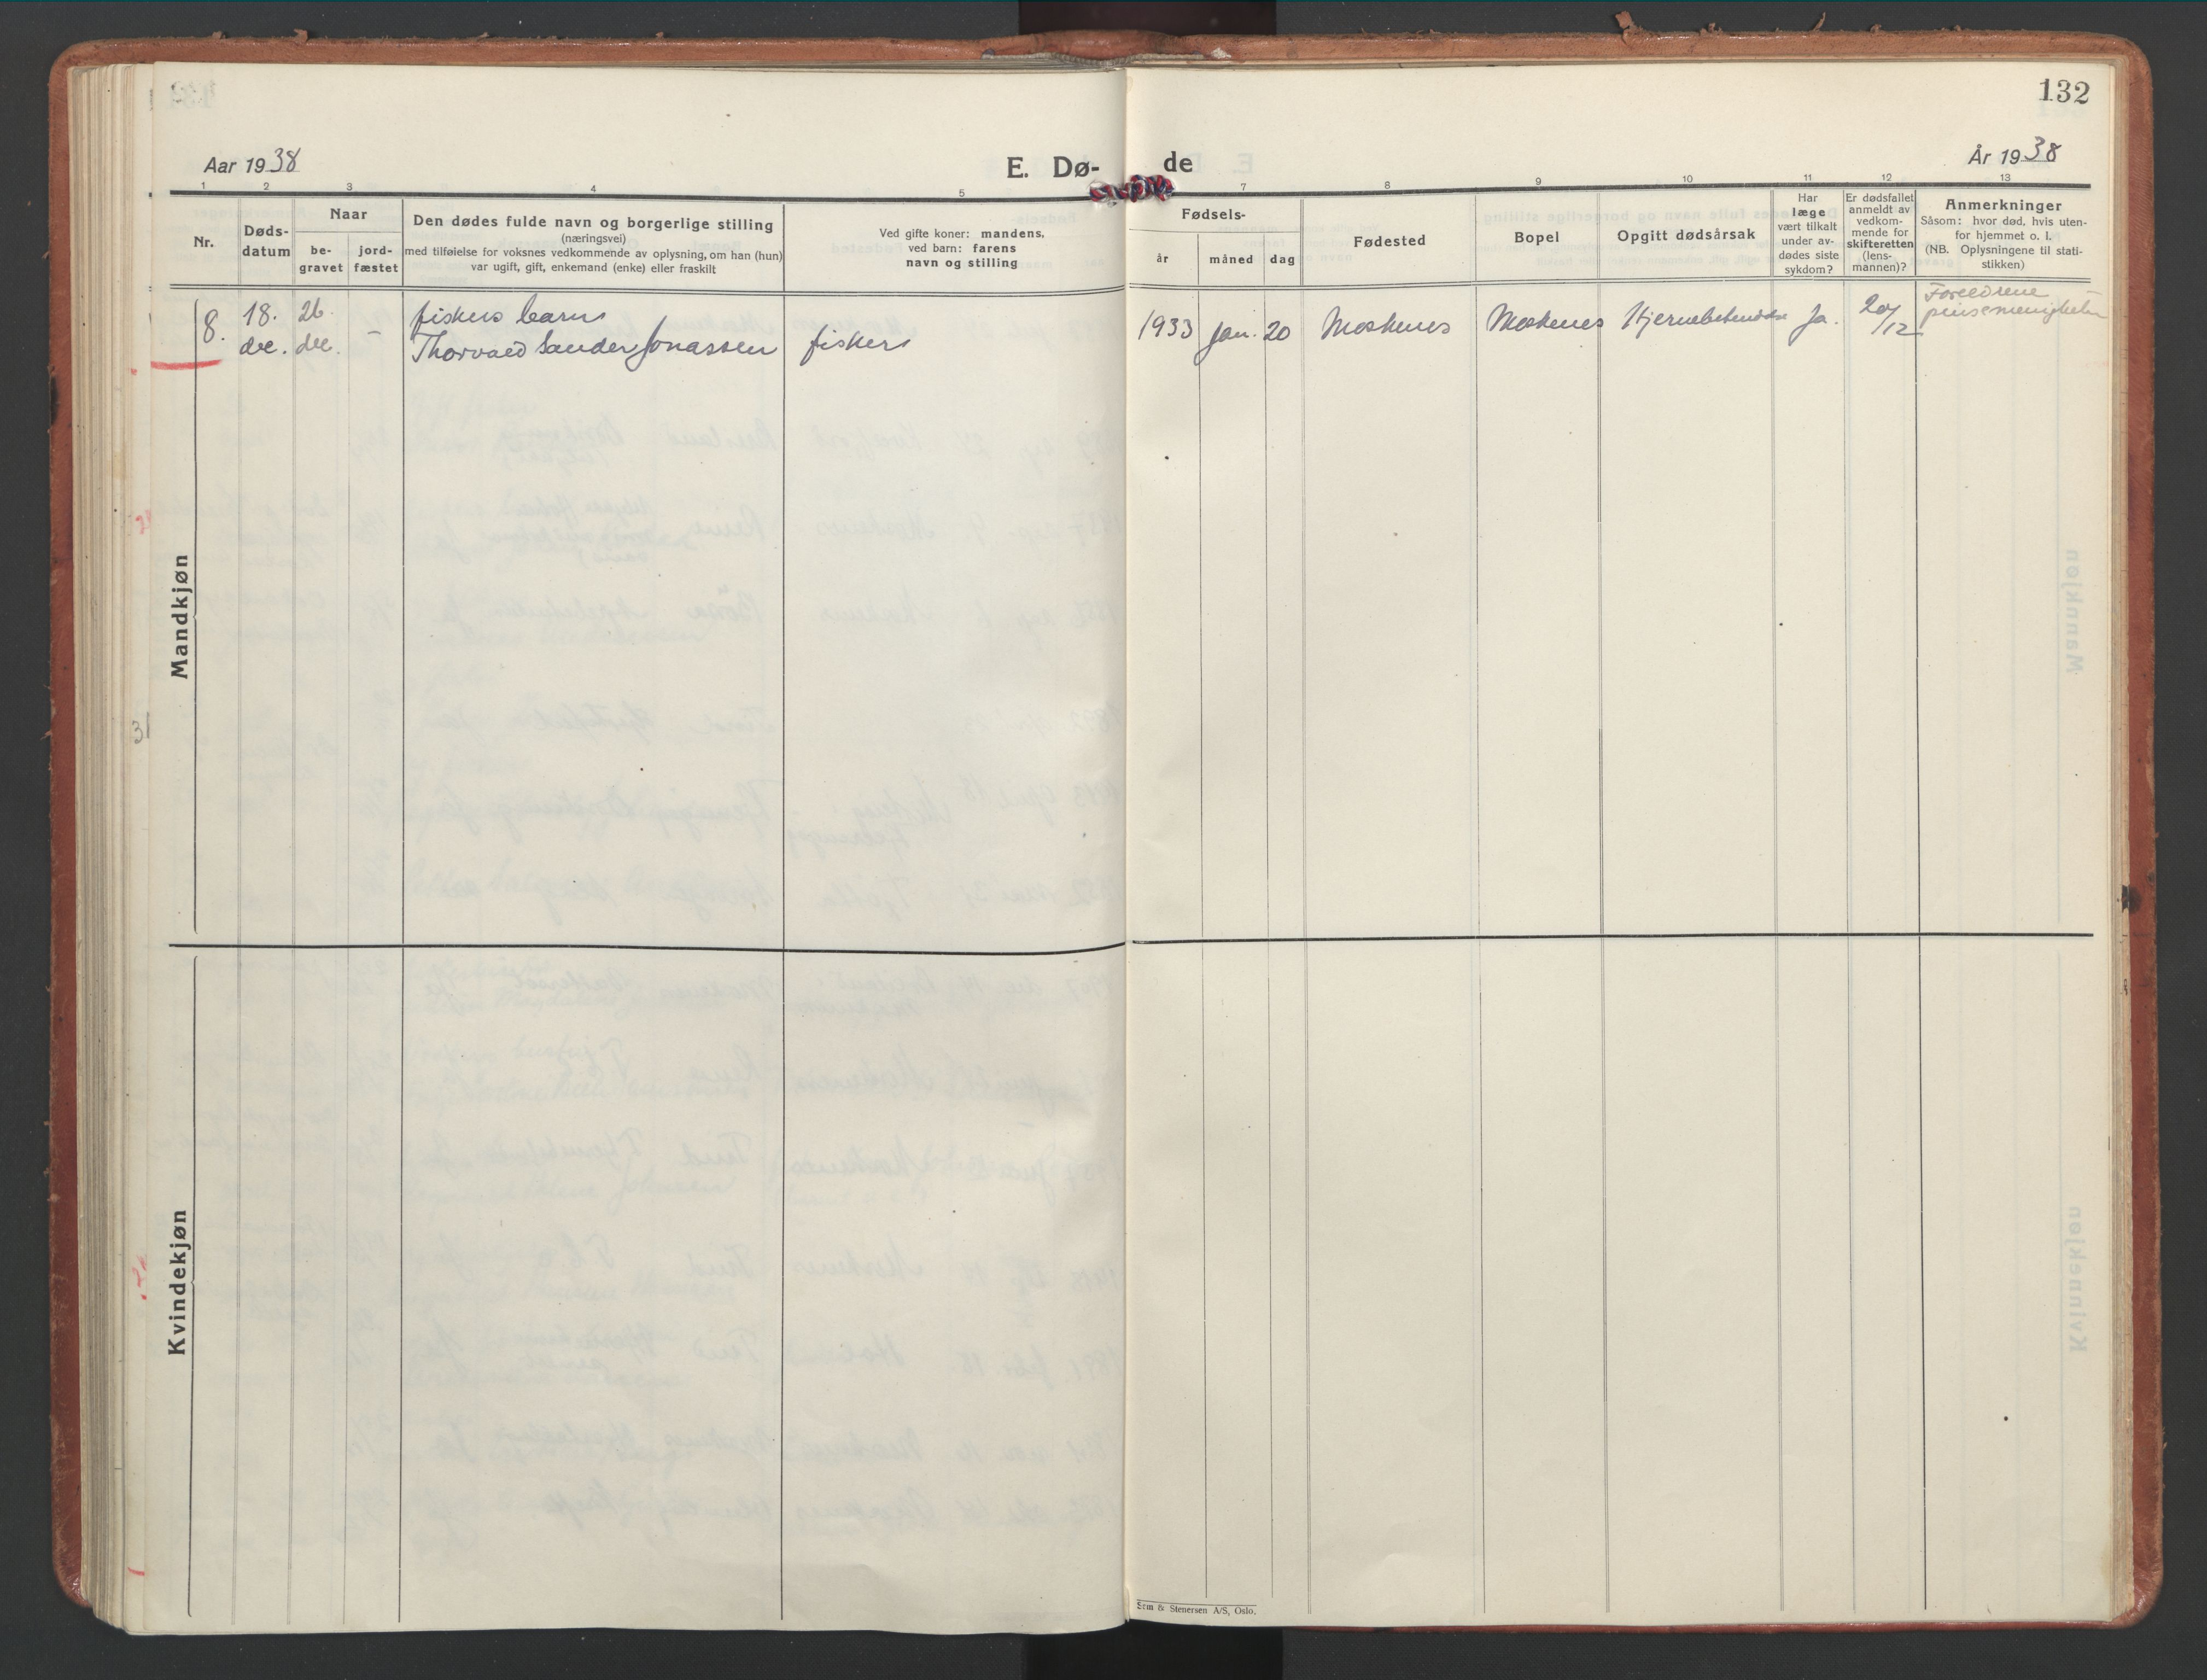 132
Aar 1938
E. Dø-
de
År 1938
1 2 3 4 5 7 8 9 10 11 12 13
Nr.
Døds-
datum
Naar
be-
gravet
jord-
fæstet
Den dødes fulde navn og borgerlige stilling
(næringsvei)
med tilføielse for voksnes vedkommende av oplysning, om han (hun)
var ugift, gift, enkemand (enke) eller fraskilt
Ved gifte koner: mandens,
ved barn: farens
navn og stilling
Fødsels-
år
måned
dag
Fødested
Bopel
Opgitt dødsårsak
Har
læge
vært tilkalt
under av-
dødes siste
sykdom?
Er dødsfallet
anmeldt av
vedkom-
mende for
skifteretten
(lens-
mannen)?
Anmerkninger
Såsom: hvor død, hvis uten-
for hjemmet o. l.
(NB. Oplysningene til stati-
stikken)
Mandkjøn
8.
18.
dec.
26.
dec.
-
fiskers barn
Thorvald Sander Jonassen
fisker
1933
jan.
20
Moskenes
Moskenes
Hjernebetendelse
Ja.
20/12
Foreldrene
pinsemenigheten
Kvindekjøn
Sem & Stenersen A/S, Oslo.